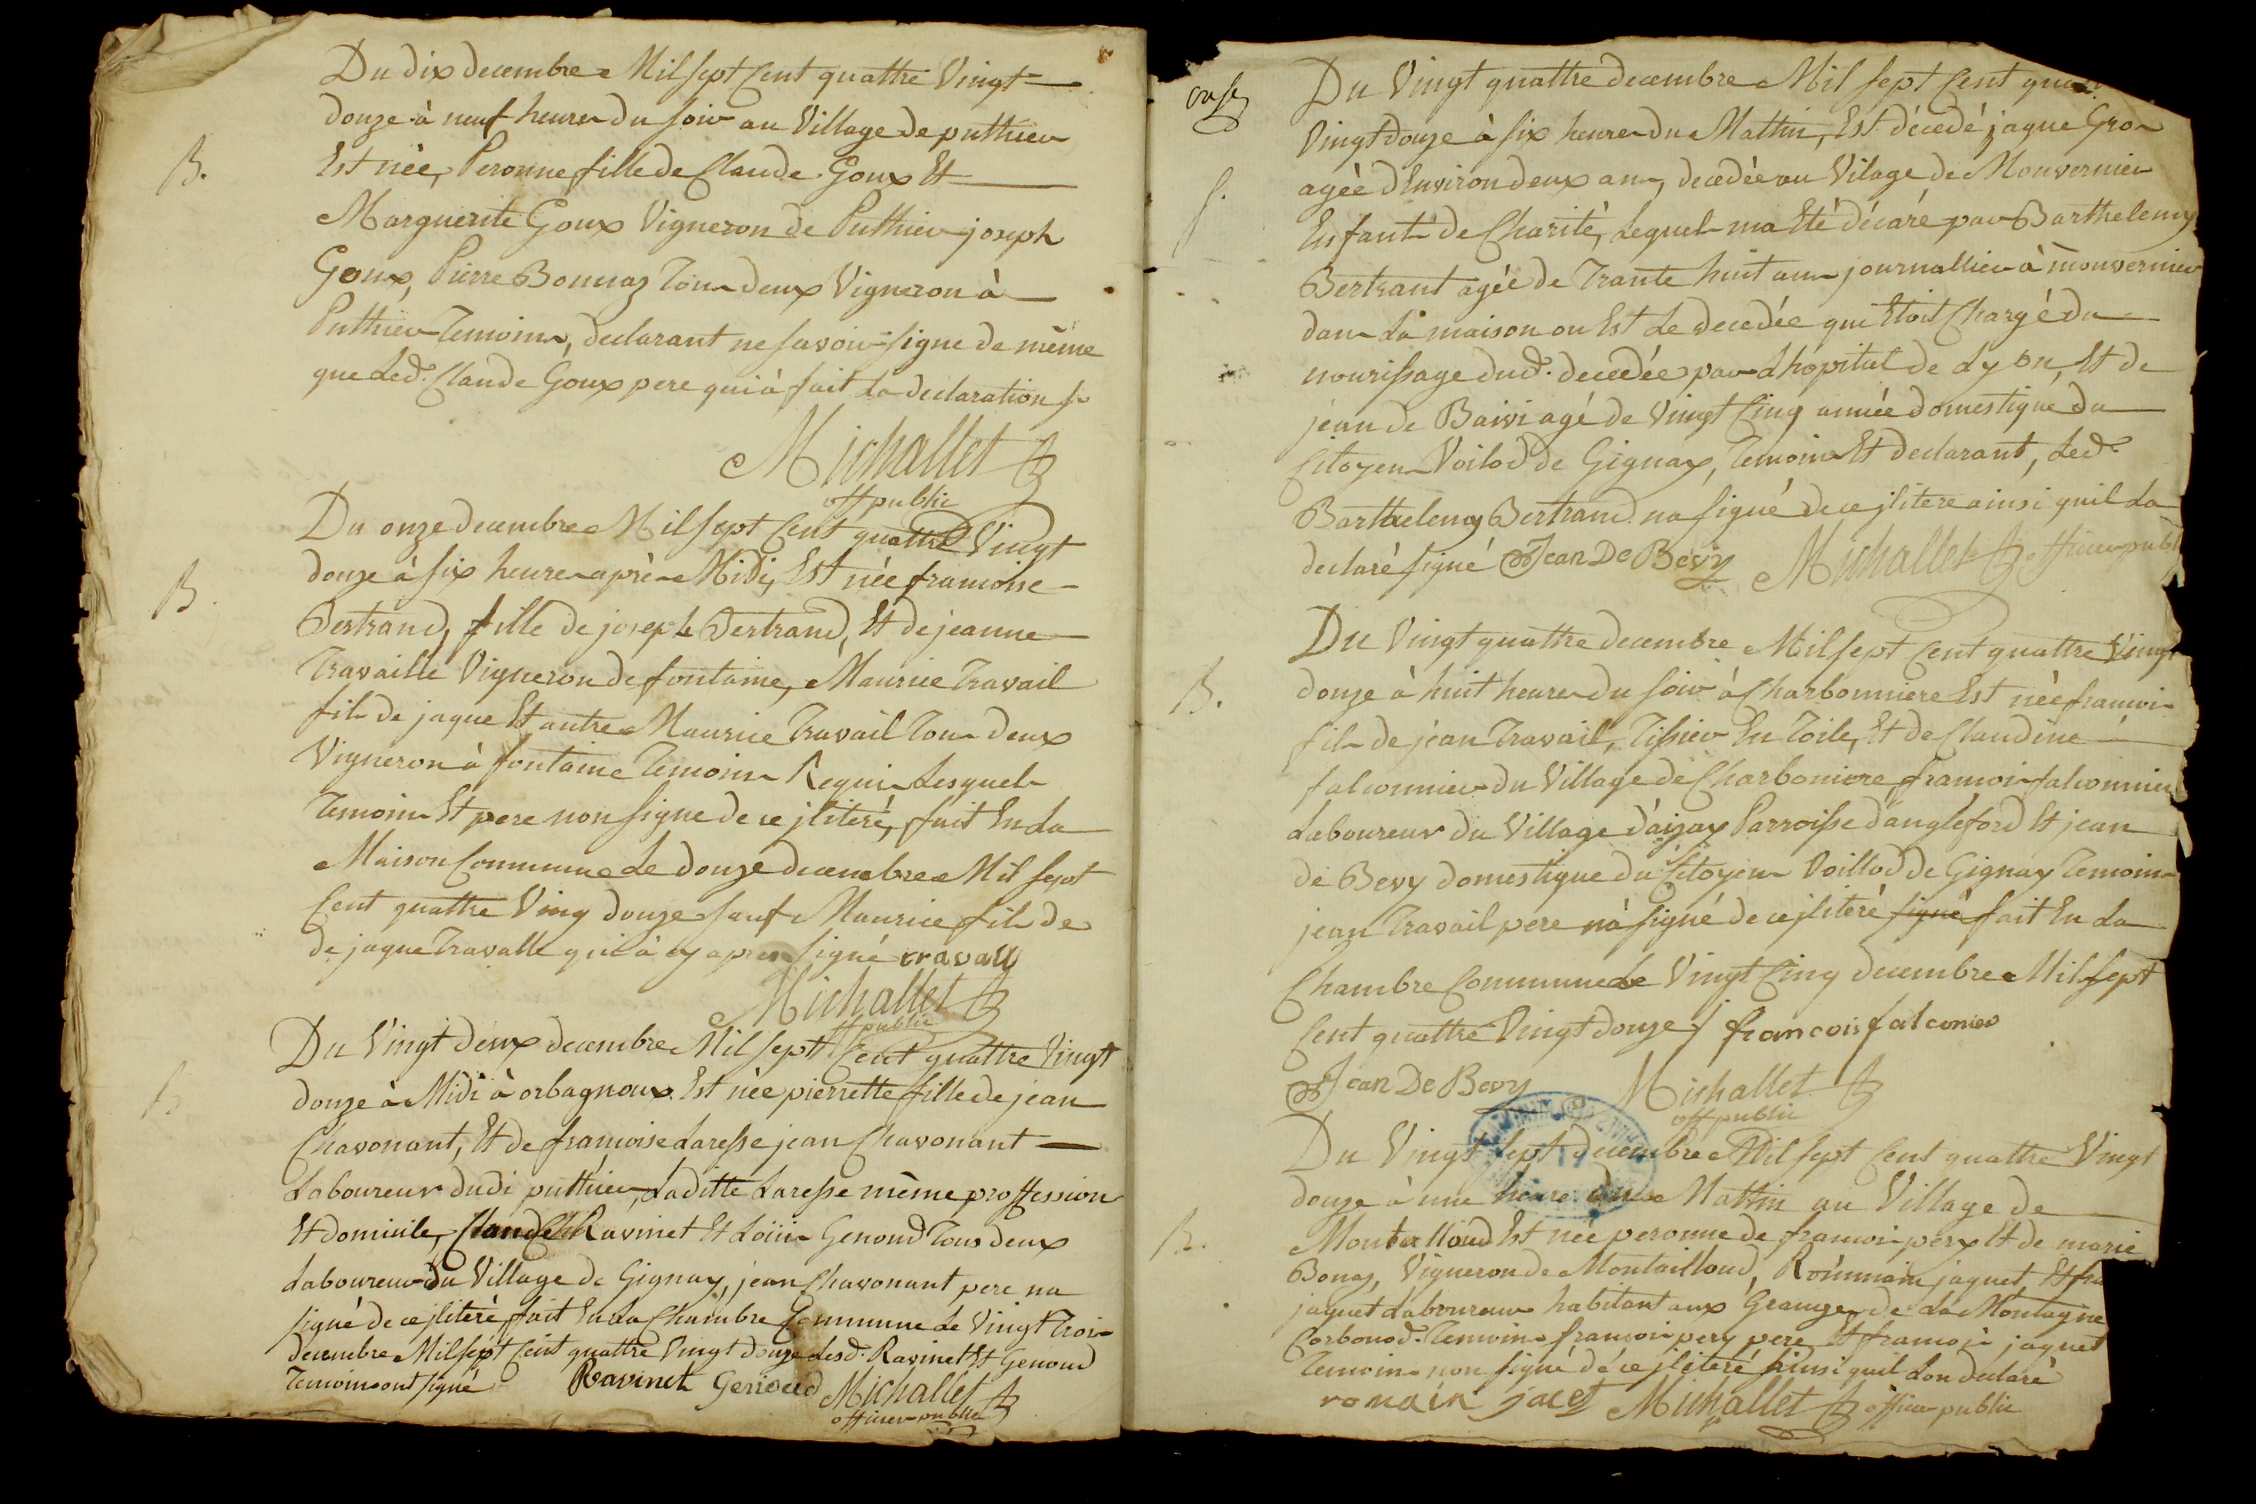 Du dix decembre Mil sept Cent quattre Vingt
douze à neuf heures du soir au Village de puthier
B.
Est nèe, Peronne fille de Claude Goux Et
Marguerite Goux Vigneron de Puthier joseph
Goux, Pierre Bonnaz Tous deux Vigneron à
Puthier Temoins, declarant ne savoir signe de mème
que Led. Claude Goux pere qui à fait La declaration
Michallet
off public
Du onze decembre Mil sept Cent quattre Vingt
douze à six heures après Midi, Est née francoise
B.
Bertrand, fille de joseph Bertrand, Et de jeanne
Travaille Vigneron de fontaine, Maurice Travail
fils de jaque Et autre Maurice Travail Tous deux
Vigneron à fontaine Temoins Requis Lesquels
Temoins Et pere non signe de ce jlliteré, fait En La
Maison Commune Le douze decembre Mil sept
Cent quattre Ving douze sauf Maurice fils de
de jaque Travalle qui à cy apres signé travail
Michallet
off public
Du Vingt deux decembre Mil sept Cent quattre Vingt
douze à Midi à orbagnoux Est nèe pierrette fille de jean
B
Chavonant, Et de francoise Laresse jean Chavonant
Laboureur dudi puthier, Laditte Laresse mème proffession
Et domicile, Claude Ravinet Et Loüis Genoud Tous deux
Laboureur du Village de Gignay, jean Chavonant pere na
signé de ce jlliteré, fait En La Chambre Commune Le Vingt Trois
decembre Mil sept Cent quattre Vingt douze Lesd. Ravinet Et Genoud
Temoins ont signé Ravinet Genoud Michallet
officier public
onse
Du Vingt quattre decembre Mil sept Cent
Vingt douze à six heures du Mattin, Est décedé jaque Gros
agèe d'Environ deux ans, decedèe au Vilage de Monvernier
Enfant de Charité, Lequel ma Eté décaré par Barthelemy
Bertrant agée de Trante huit ans journallier à monvernier
dans La maison ou Est Le decedée qui Etoit Chargé du
nourissage dud. decedée par Lhopital de Lyon, Et de
jean de Baivi agé de Vingt Cinq année domestique du
Citoyen Voilod de Gignay, Temoins Et declarant, Led.
Barthelemy Bertrand na signé de ce jlitere ainsi quil La
declaré signé Jean De Bevy Michallet officier publ
Du Vingt quattre decembre Mil sept Cent quattre Vingt
B.
douze à huit heures du soir à Charbonniere Est nèe francois
fils de jean Travail, Tissier En Toile, Et de Claudine
falconnier du Village de Charboniere francois falconnier
Laboureur du Village d'aizay Parroisse d'anglefond Et jean
de Bevy domestique du Citoyen Voillod de Gignay Temoins
jean Travail pere nà signé de ce jliteré signé fait En La
Chambre Commune Le Vingt Cinq decembre Mil sept
Cent quattre Vingt douze / francois falconier
Jean De Bevy Michallet
off public
Du Vingt sept decembre Mil sept Cent quattre Vingt
douze à une heure du Mattin au Village de
B.
Montailloud Est née peronne de francois pery Et de marie
Bonaz, Vigneron de Montailloud, Rommain jaquet, Et
jaquet Laboureur habitant aux Granges de La Montagne
Corbonod. Temoins francois pery pere Et francois jaquet
Temoins non signé de ce jliteré ainsi quil Lon declarè
romain jacet Michallet officier public